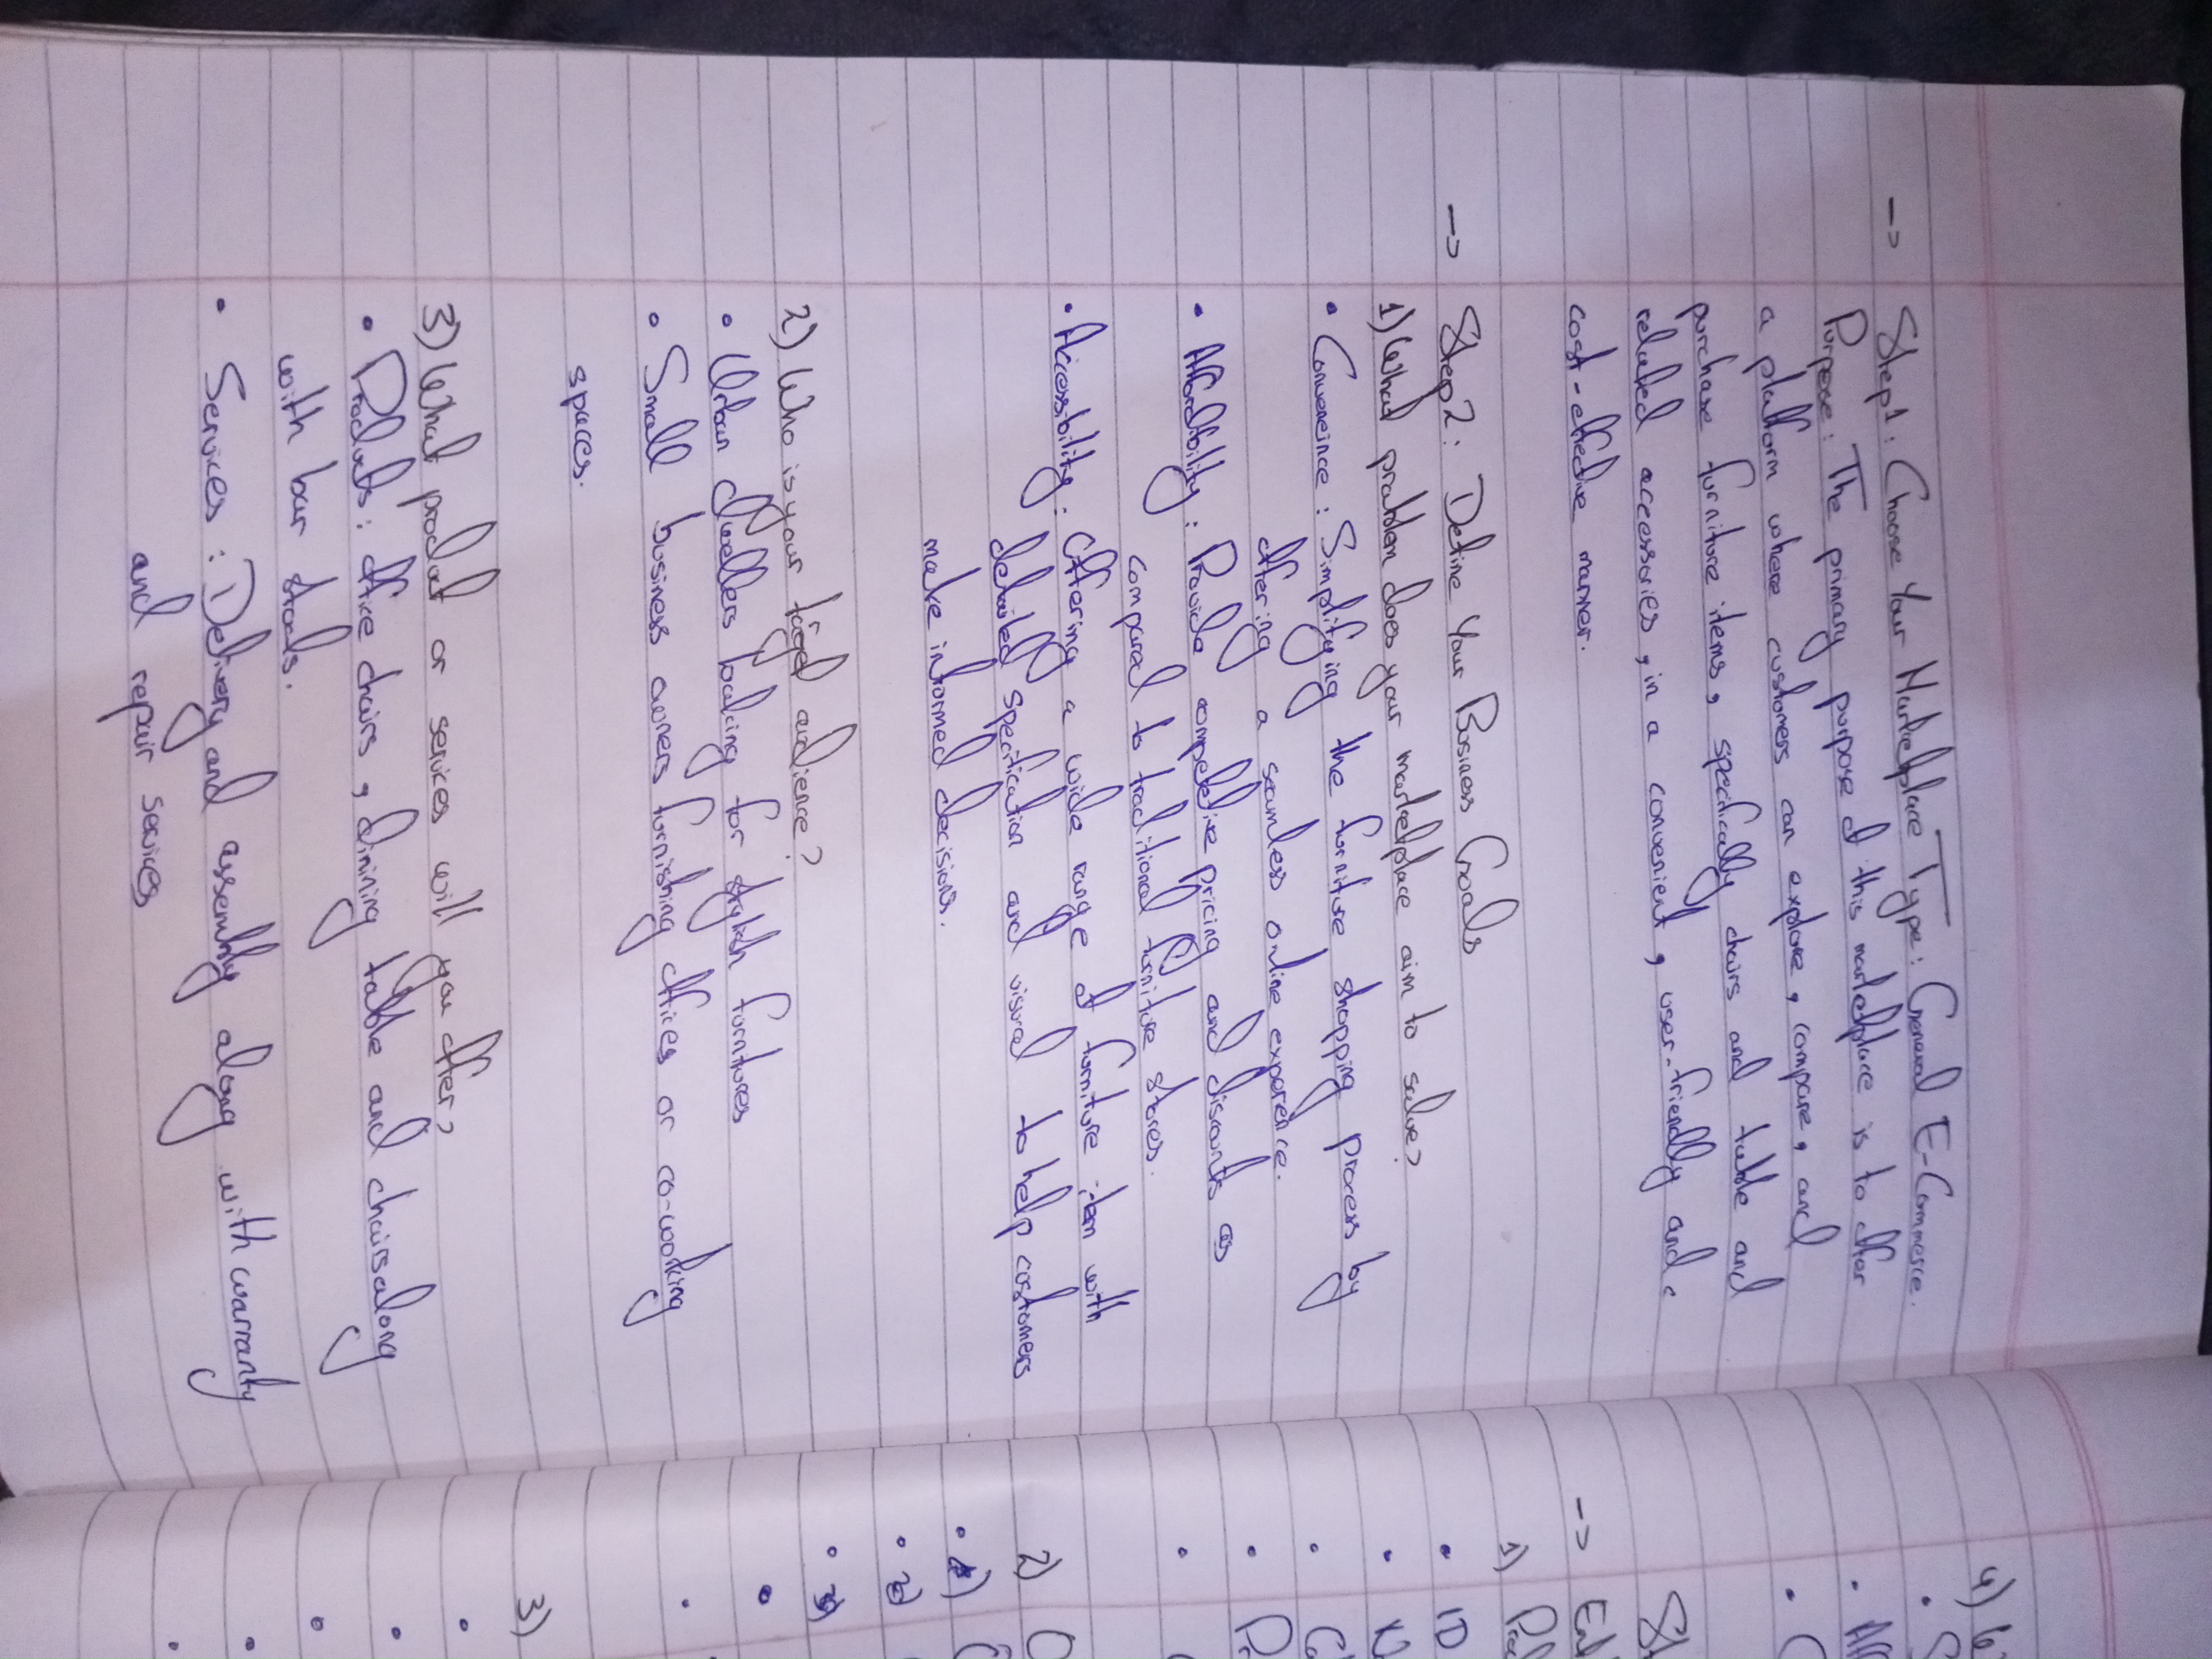 -> Step 1 : Choose Your Marketplace Type : General E-Commerce.
Purpose : The primary purpose of this marketplace is to offer
a platform where customers can explore, compare, and
purchase furniture items, specifically chairs and table and
related accessories, in a convenient, user-friendly and
cost-effective manner.
-> Step 2 : Define Your Business Goals
1) What problem does your marketplace aim to solve?
• Conveneince : Simplifying the furniture shopping process by
offering a seamless online experience.
• Affordibility : Provide competetive pricing and discounts as
compared to traditional furniture stores.
• Accessibility : Offering a wide range of furniture item with
detailed specification and visual to help costomers
make informed decisions.
2) Who is your target audience?
• Urban dwellers looking for stylish furnitures
• Small business owners furnishing offices or co-working
spaces.
3) What product or services will you offer?
• Products : office chairs, dining table and chairs along
with bar stools.
• Services : Delivery and assembly along with warranty
and repair services
4)
•
•
•
-> 
1)
• ID
•
•
•
•
2)
•
•
•
•
•
3)
•
•
•
•
•